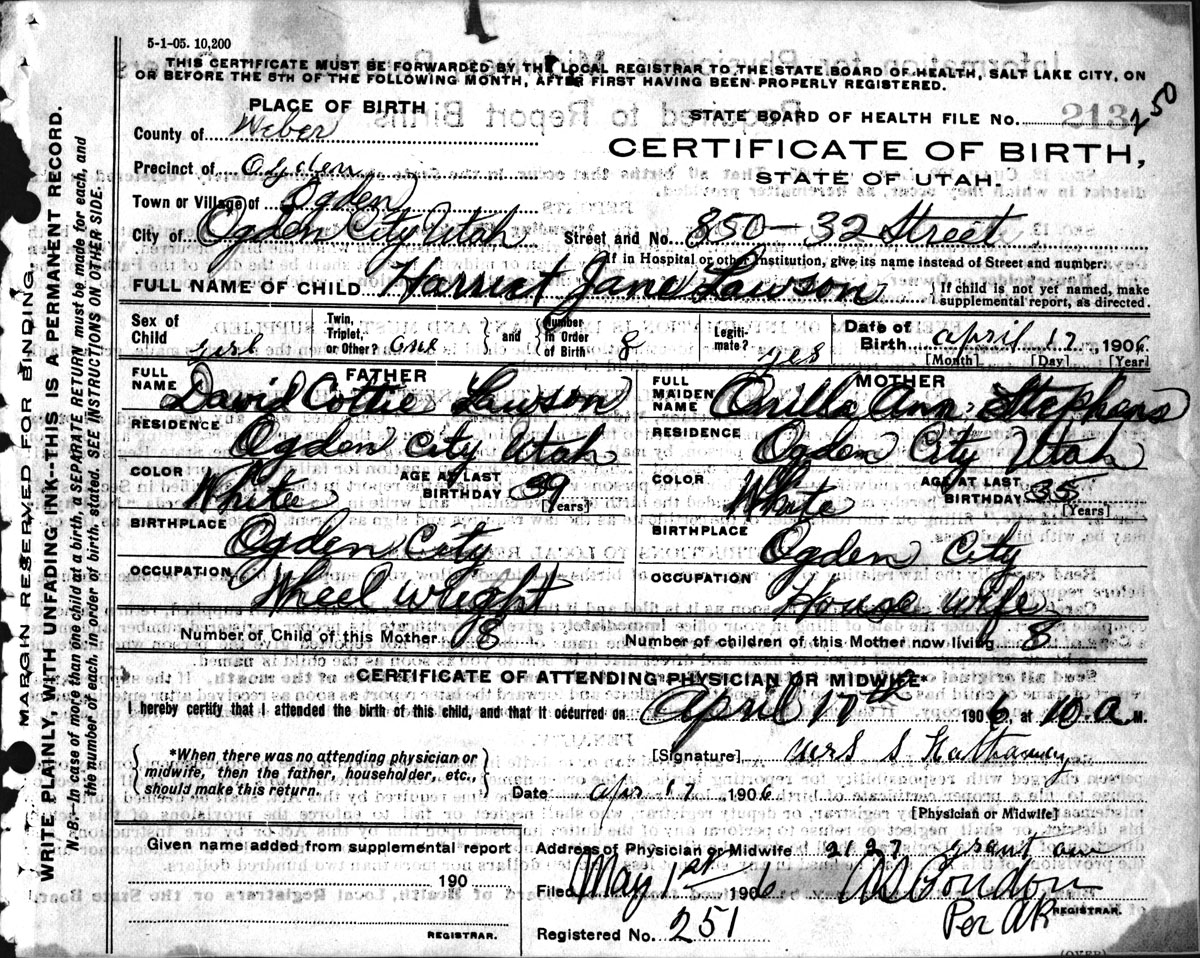 5-1-05. 10,200
THIS CERTIFICATE MUST BE FORWARDED BY THE LOCAL REGISTRAR TO THE STATE BOARD OF HEALTH, SALT LAKE CITY, ON
OR BEFORE THE 5TH OF THE FOLLOWING MONTH, AFTER FIRST HAVING BEEN PROPERLY REGISTERED.
PLACE OF BIRTH
STATE BOARD OF HEALTH FILE NO. 213 250
County of Weber
CERTIFICATE OF BIRTH,
Precinct of Ogden
STATE OF UTAH.
Town or Village of Ogden
City of Ogden City Utah Street and No. 850-32 Street
If in Hospital or other Institution, give its name instead of Street and number.
FULL NAME OF CHILD Harriet Jane Lawson { If child is not yet named, make
supplemental report, as directed.
Sex of Child girl Twin, Triplet, or Other? one and Number in Order of Birth 8 Legitimate? yes Date of Birth april 17, 1906
[Month] [Day] [Year]
FATHER
FULL NAME David Cottie Lawson
MOTHER
FULL MAIDEN NAME Orilla Ann Stephens
RESIDENCE Ogden City Utah
RESIDENCE Ogden City Utah
COLOR White AGE AT LAST BIRTHDAY 39 [Years]
COLOR White AGE AT LAST BIRTHDAY 35 [Years]
BIRTHPLACE Ogden City
BIRTHPLACE Ogden City
OCCUPATION Wheel wright
OCCUPATION House wife
Number of Child of this Mother 8 Number of children of this Mother now living 8
CERTIFICATE OF ATTENDING PHYSICIAN OR MIDWIFE*
I hereby certify that I attended the birth of this child, and that it occurred on April 17th 1906, at 10 a M.
{ *When there was no attending physician or
midwife, then the father, householder, etc.,
should make this return. }
[Signature] Mrs S Hathaway
Date apr 17 1906 [Physician or Midwife]
Given name added from supplemental report
190
REGISTRAR.
Address of Physician or Midwife 2127 grant av
Filed May 1st 1906
Per AK REGISTRAR.
Registered No. 251
(OVER)
MARGIN RESERVED FOR BINDING.
WRITE PLAINLY, WITH UNFADING INK--THIS IS A PERMANENT RECORD.
N. B.-In case of more than one child at a birth, a SEPARATE RETURN must be made for each, and
the number of each, in order of birth, stated. SEE INSTRUCTIONS ON OTHER SIDE.